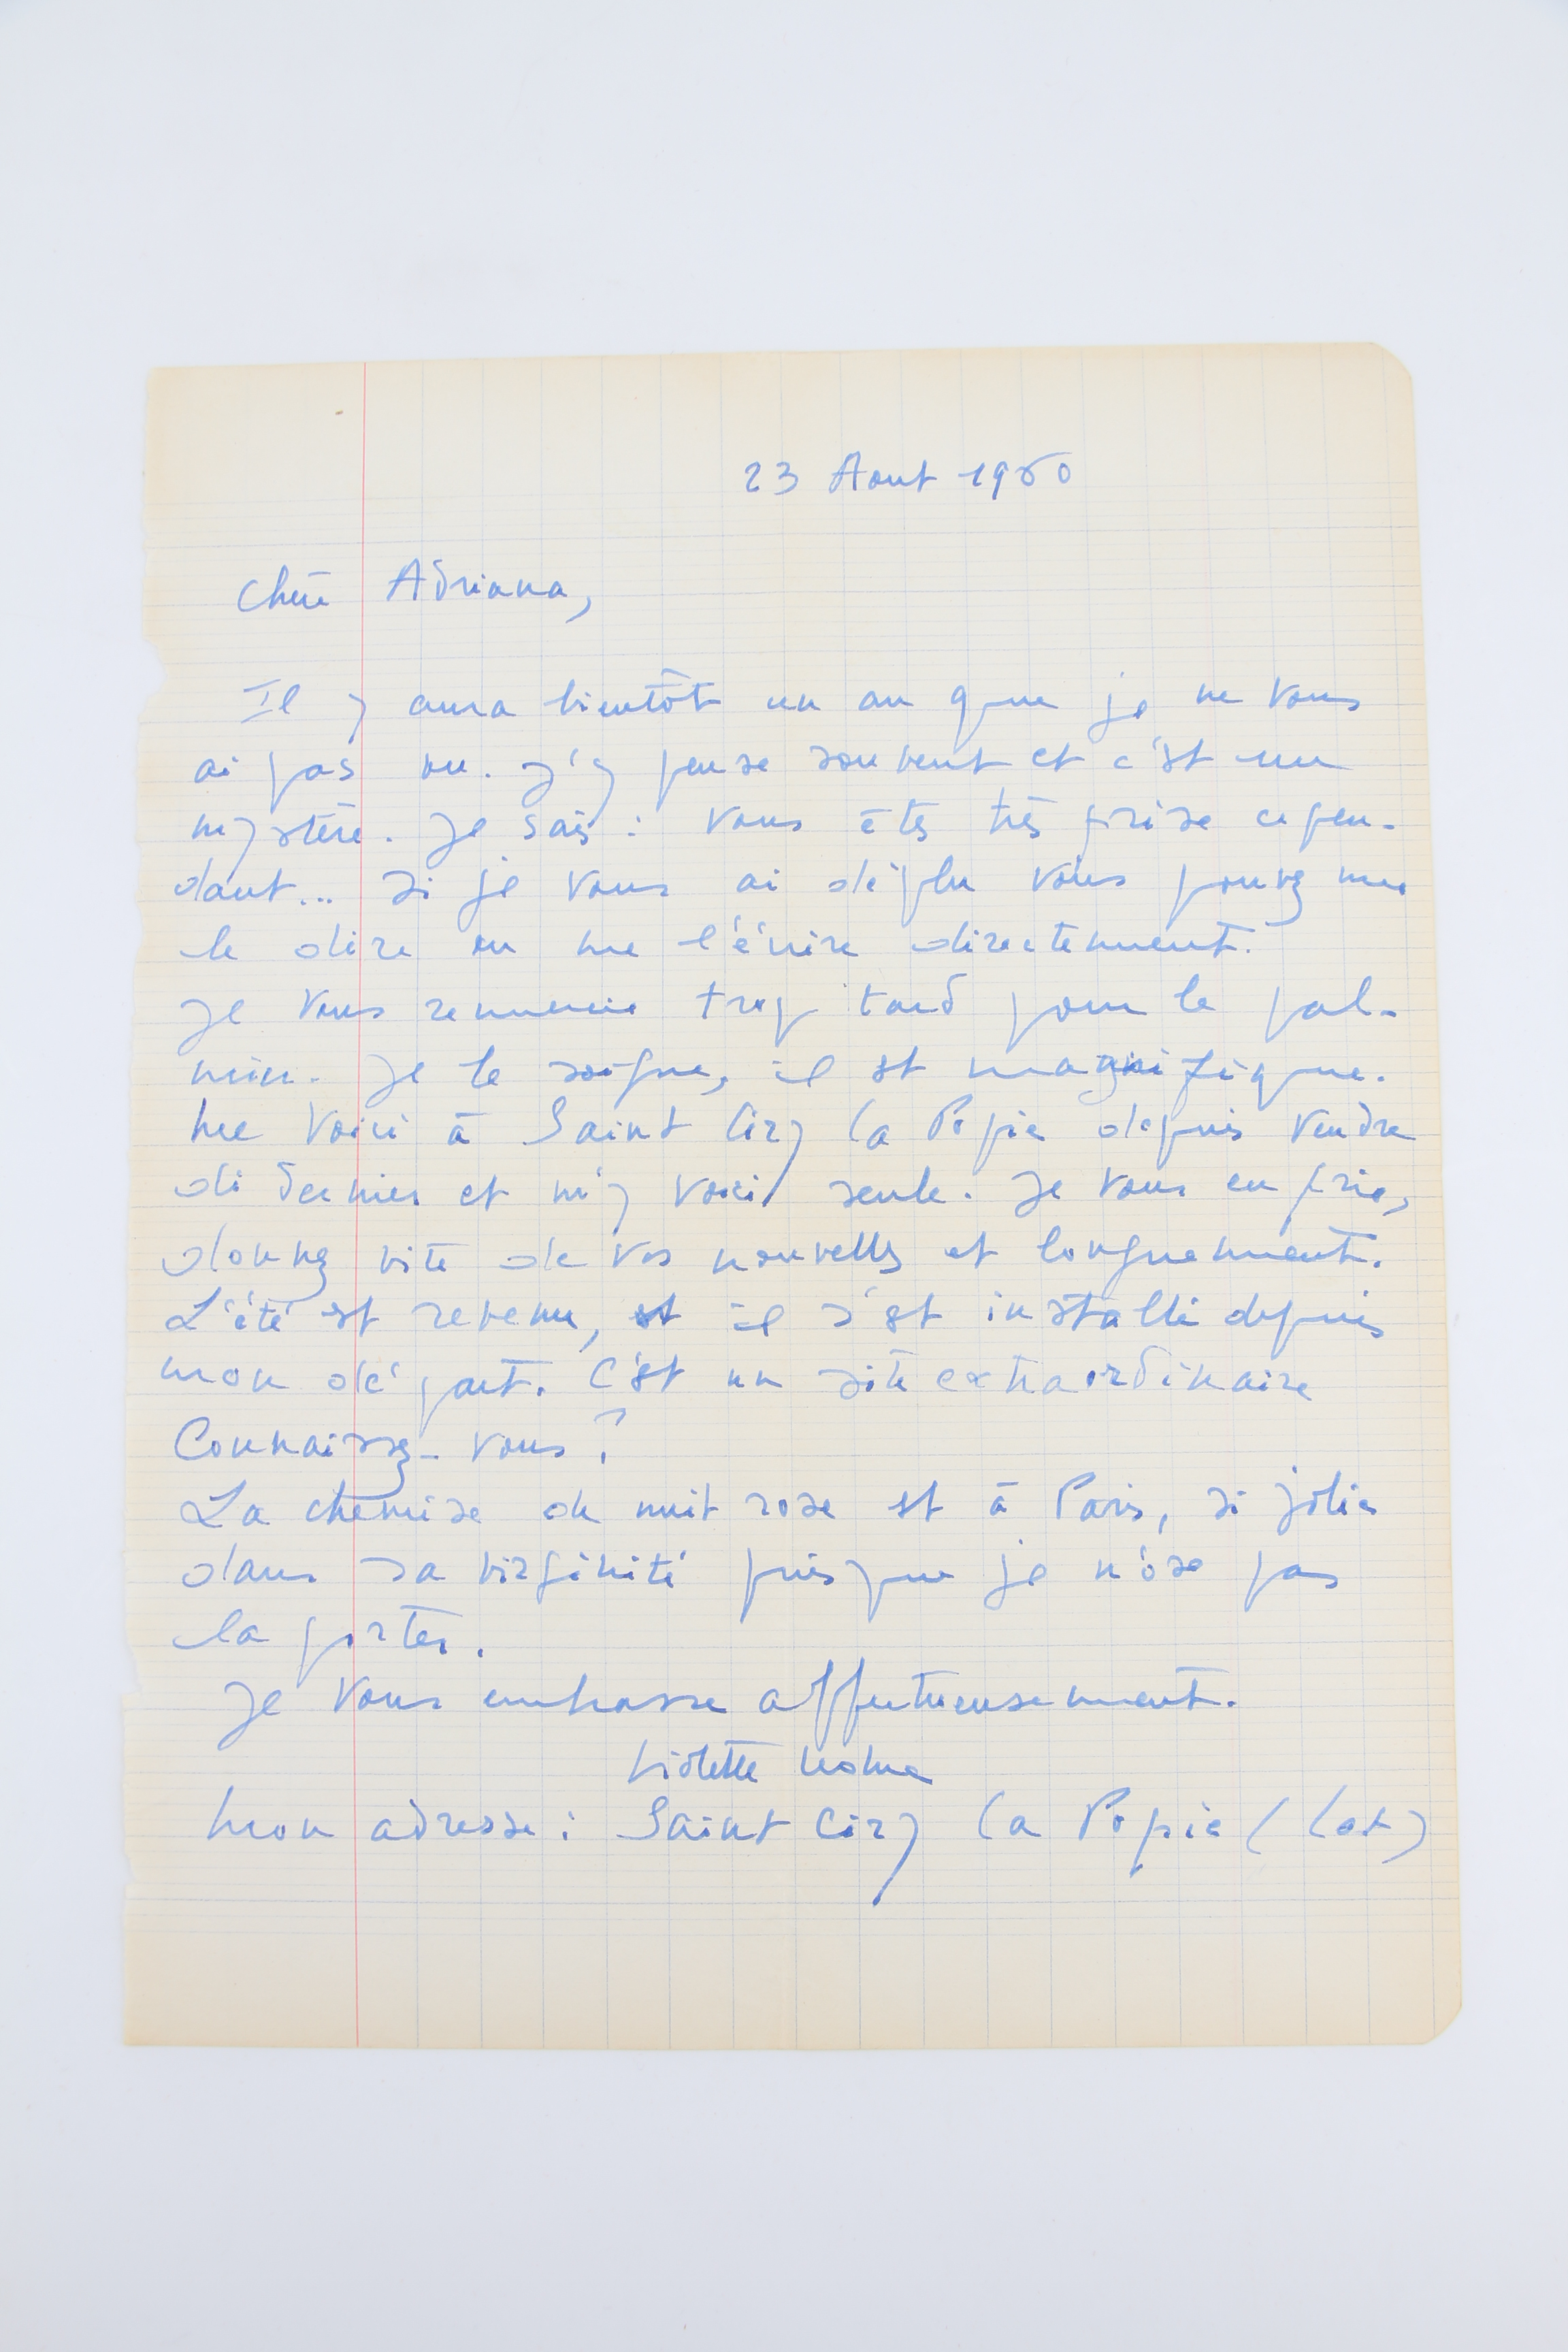 23 Aout 1960
Chère Adriana,
Il y aura bientôt un an que je ne vous
ai pas vu. J'y pense souvent et c'est un
mystère. Je sais : vous êtes très prise cepen-
dant... Si je vous ai déplu vous pouvez me
le dire ou me l'écrire directement.
Je vous remercie trop tard pour le pal-
mier. Je le soigne, il est magnifique.
Me voici à Saint Cirq la Popie depuis vendre
di dernier et m'y voici seule. Je vous en prie,
donnez vite de vos nouvelles et longuement.
L'été est revenu, et il s'est installé depuis
mon départ. C'est un site extraordinaire
Connaissez-vous ?
La chemise de nuit rose est à Paris, si jolie
dans sa virginité puisque je n'ose pas
la porter.
Je vous embrasse affectueusement.
Violette
Mon adresse : Saint Cirq la Popie (Lot)